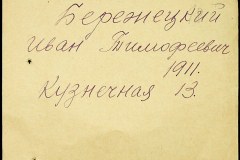 Бережецкий
Иван Тимофеевич
1911.
Кузнечная 13.